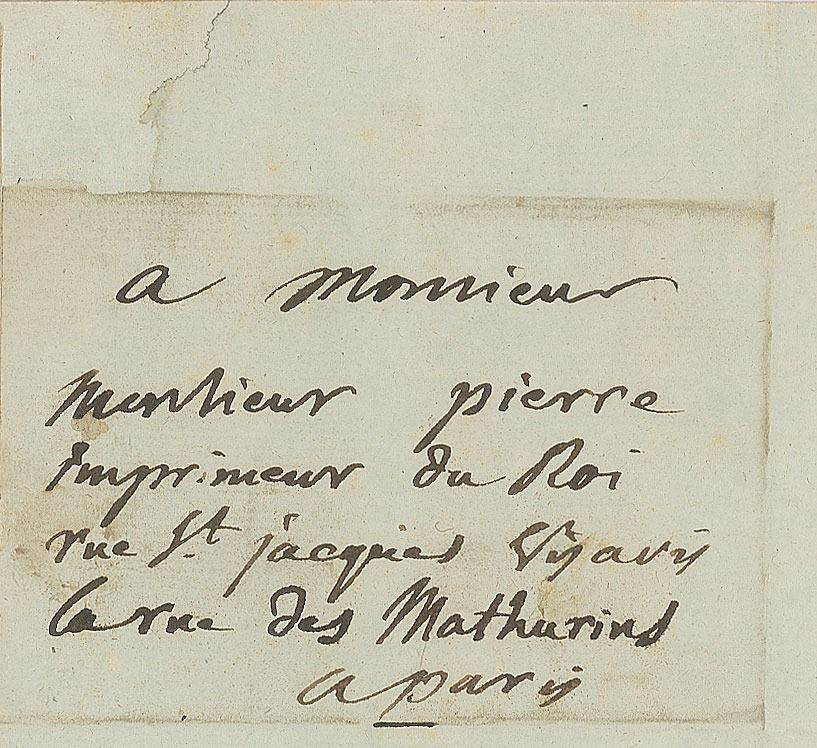 a Monsieur
Monsieur pierre
imprimeur du Roi
rue St. jacques Vis avis
la rue des Mathurins
a paris